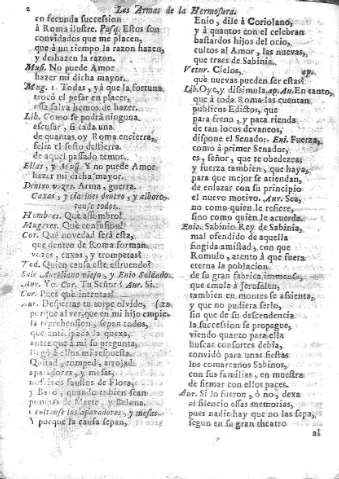 2 Las Armas de la Hermosura.
en fecunda succession
à Roma ilustre. Pasq. Estos son
convidados que me placen,
que à un tiempo la razon hazen,
y deshazen la razon.
Mus. No puede Amor
hazer mi dicha mayor.
Mug. 1. Todas, yà que la fortuna
trocò el pesar en placer,
essa salva hemos de hazer.
Lib. Como se podrà ninguna
escusar, si cada una
de quantas oy Roma encierra,
felia el festo destierra
de aquel passado temor.
Ellas, y Mus. Y no puede Amor
hazer mi dicha mayor.
Dentro vozes. Arma, guerra.
Caxas, y clarines dentro, y alboro-
tanse todos.
Hombres. Què assombro!
Mugeres. Què confusion!
Cor. Què novedad serà esta,
que dentro de Roma forman
vozes, caxas, y trompetas?
Tod. Quien causa este estruendo?
Sale Aureliano viejo, y Enio Soldado.
Aur. Yo. Cor. Tu Señor? Aur. Si.
Cor. Pues què intentas?
Aur. Despertar tu torpe olvido,
porque al ver que en mi hijo empie- (za
la reprehension, sepan todos,
que anticipada la quexa,
antes que à mi su pregunta,
llegò à ellos mi respuesta.
Quitad, romped, arrojad
aparadores, y mesas,
nocivos faustos de Flora,
y Baco, quando tañen sean
pompas de Marte, y Belona.
y porque la causa sepan,
Enio, dile à Coriolano,
y à quantos con el celebran
bastardos hijos del ocio,
cultos al Amor, las nuevas,
que traes de Sabinia.
Vetur. Cielos, ap.
què nuevas pueden ser estas?
Lib. Oye, y dissimula. ap. Au. En tanto,
que à toda Roma las cuentan
publicos Edictos, que
para freno, y para rienda
de tan locos devaneos,
dispone el Senado. Eni. Fuerza,
como à primer Senador,
es, señor, que te obedezca;
y fuerza tambien, que haya,
para que mejor se atiendan,
de enlazar con su principio
el nuevo motivo. Aur. Sea,
no como quien le refiere,
sino como quien le acuerda.
Enio. Sabinio, Rey de Sabinia,
mal ofendido de aquella
fingida amistad, con que
Romulo, atento à que fuera
eterna la poblacion
de su gran fabrica inmensa,
que emula à Jerusalen,
tambien en montes se assienta,
y que no pudiera serlo,
sin que de su descendencia
la succession se propague,
viendo quanto para ella
buscar consortes debia,
convidò para unas fiestas
los comarcanos Sabinos,
con sus familias, en muestra
de firmar con ellos pazes.
Aur. Si lo fueron, ò no, dexa
al silencio essas memorias,
pues nadie hay que no las sepa,
segun en su gran theatro
al